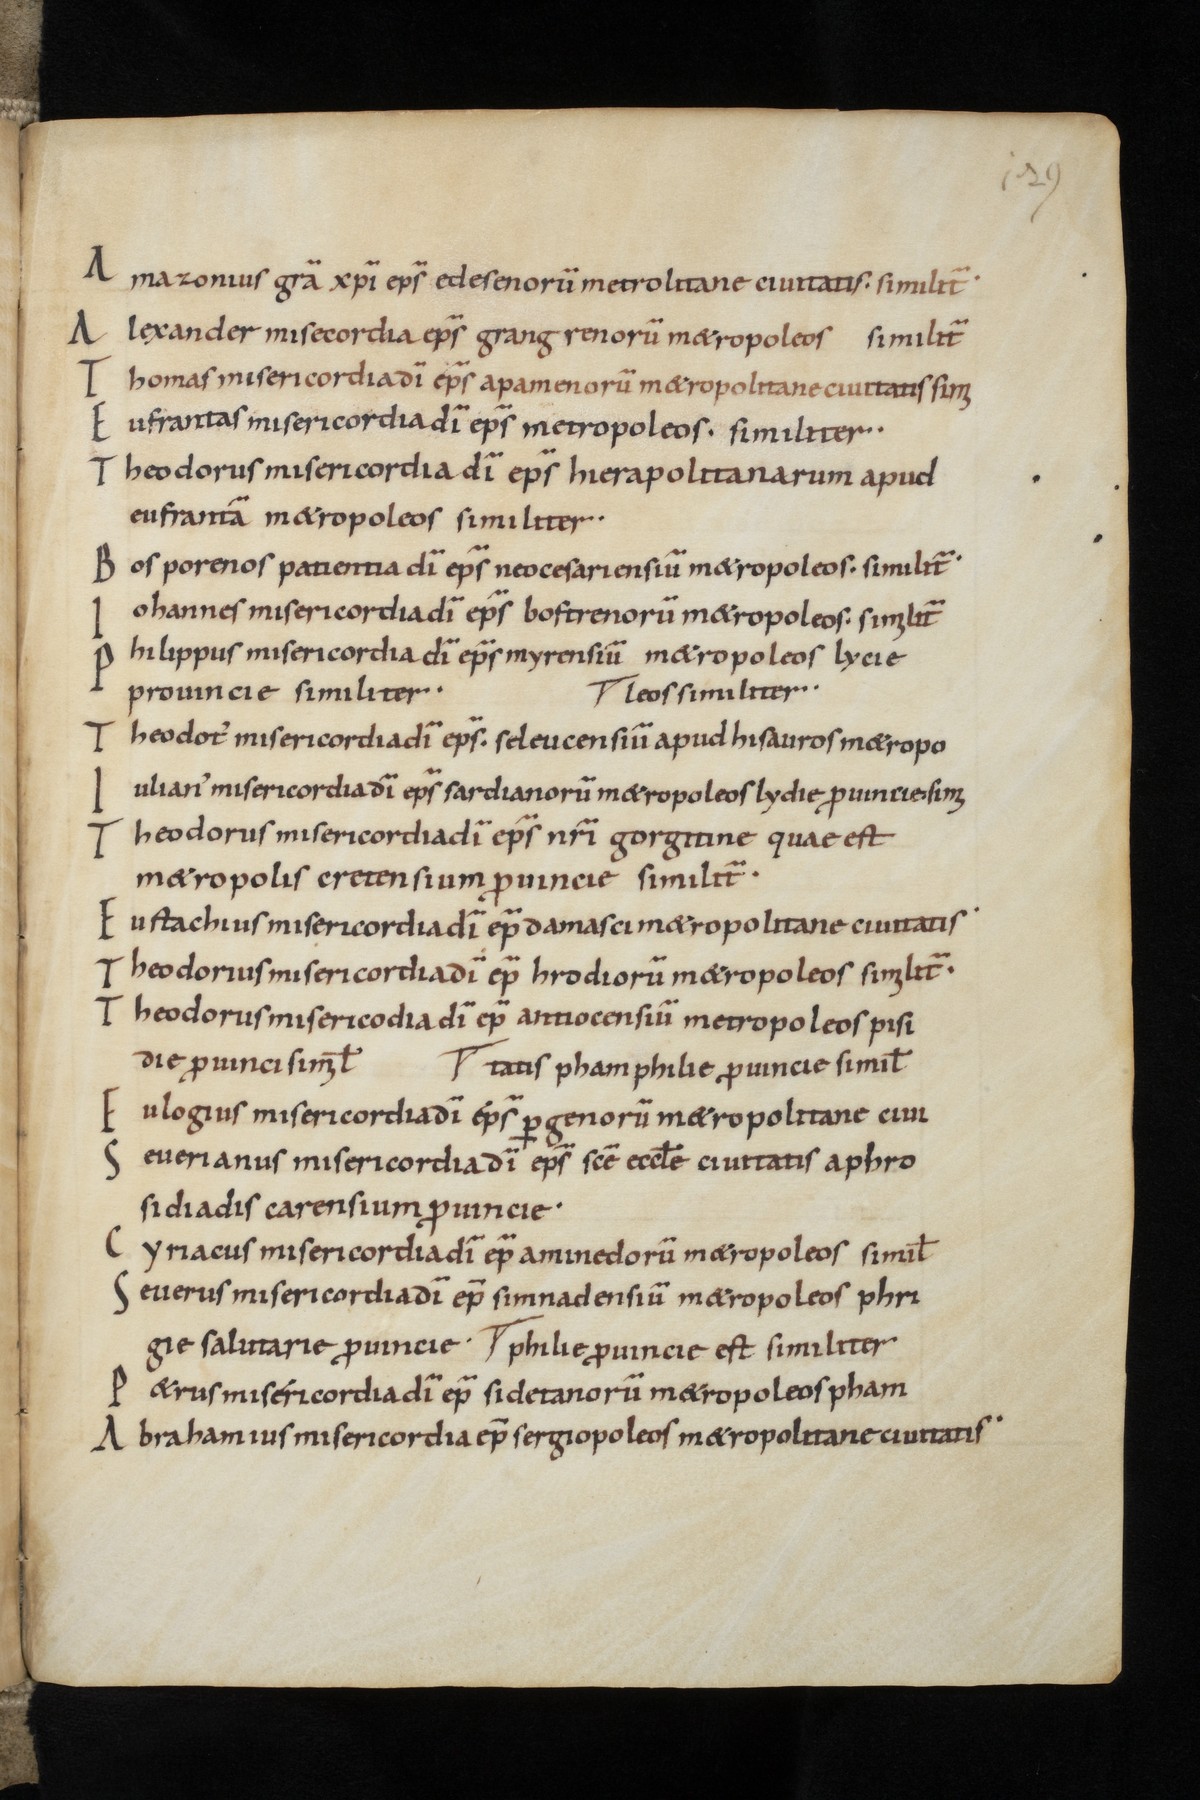 129
Amazonius grā xpī ep̄s edesenorū metrolitane ciuitatis. similit̄.
Alexander misecordia ep̄s grang renorū m&ropoleos similit̄
Thomas misericordia dī ep̄s apamenorū m&ropolitane ciuitatis sim
Eufrantas misericordia dī ep̄s metropoleos. similiter.
Theodorus misericordia dī ep̄s hierapolitanarum apud
eufrantā m&ropoleos similiter.
Bosporenos patientia dī ep̄s neocesariensiū m&ropoleos. similit̄.
Iohannes misericordia dī ep̄s bostrenorū m&ropoleos. simlit̄
Philippus misericordia dī ep̄s myrensiū m&ropoleos lycie
prouincie similiter. leos similiter.
Theodot᾽ misericordia dī ep̄s. seleucensiū apud hisauros m&ropo
Iulian᾽ misericordia dī ep̄s sardianorū m&ropoleos lydie ꝓuincie. sim
Theodorus misericordia dī ep̄s nr̄ī gorgitine quae est
m&ropolis cretensium ꝓuincie similit̄.
Eustachius misericordia dī ep̄ damasci m&ropolitane ciuitatis.
Theodorius misericordia dī ep̄ hrodiorū m&ropoleos simlit̄.
Theodorus misericodia dī ep̄ antiocensiū metropoleos pisi
die ꝓuinci siml̄ tatis phamphilie ꝓuincie simil̄
Eulogius misericordia dī ep̄s ꝑgenorū m&ropolitane ciui
Seuerianus misericordia dī ep̄s scē eccl̄e ciuitatis aphro
sidiadis carensium ꝓuincie.
Cyriacus misericordia dī ep̄ aminedorū m&ropoleos simil̄
Seuerus misericordia dī ep̄ simnadensiū m&ropoleos phri
gie salutarie ꝓuincie. philie ꝓuincie est similiter
P&rus misericordia dī ep̄ sidetanorū m&ropoleos pham
Abrahamius misericordia ep̄ sergiopoleos m&ropolitane ciuitatis.